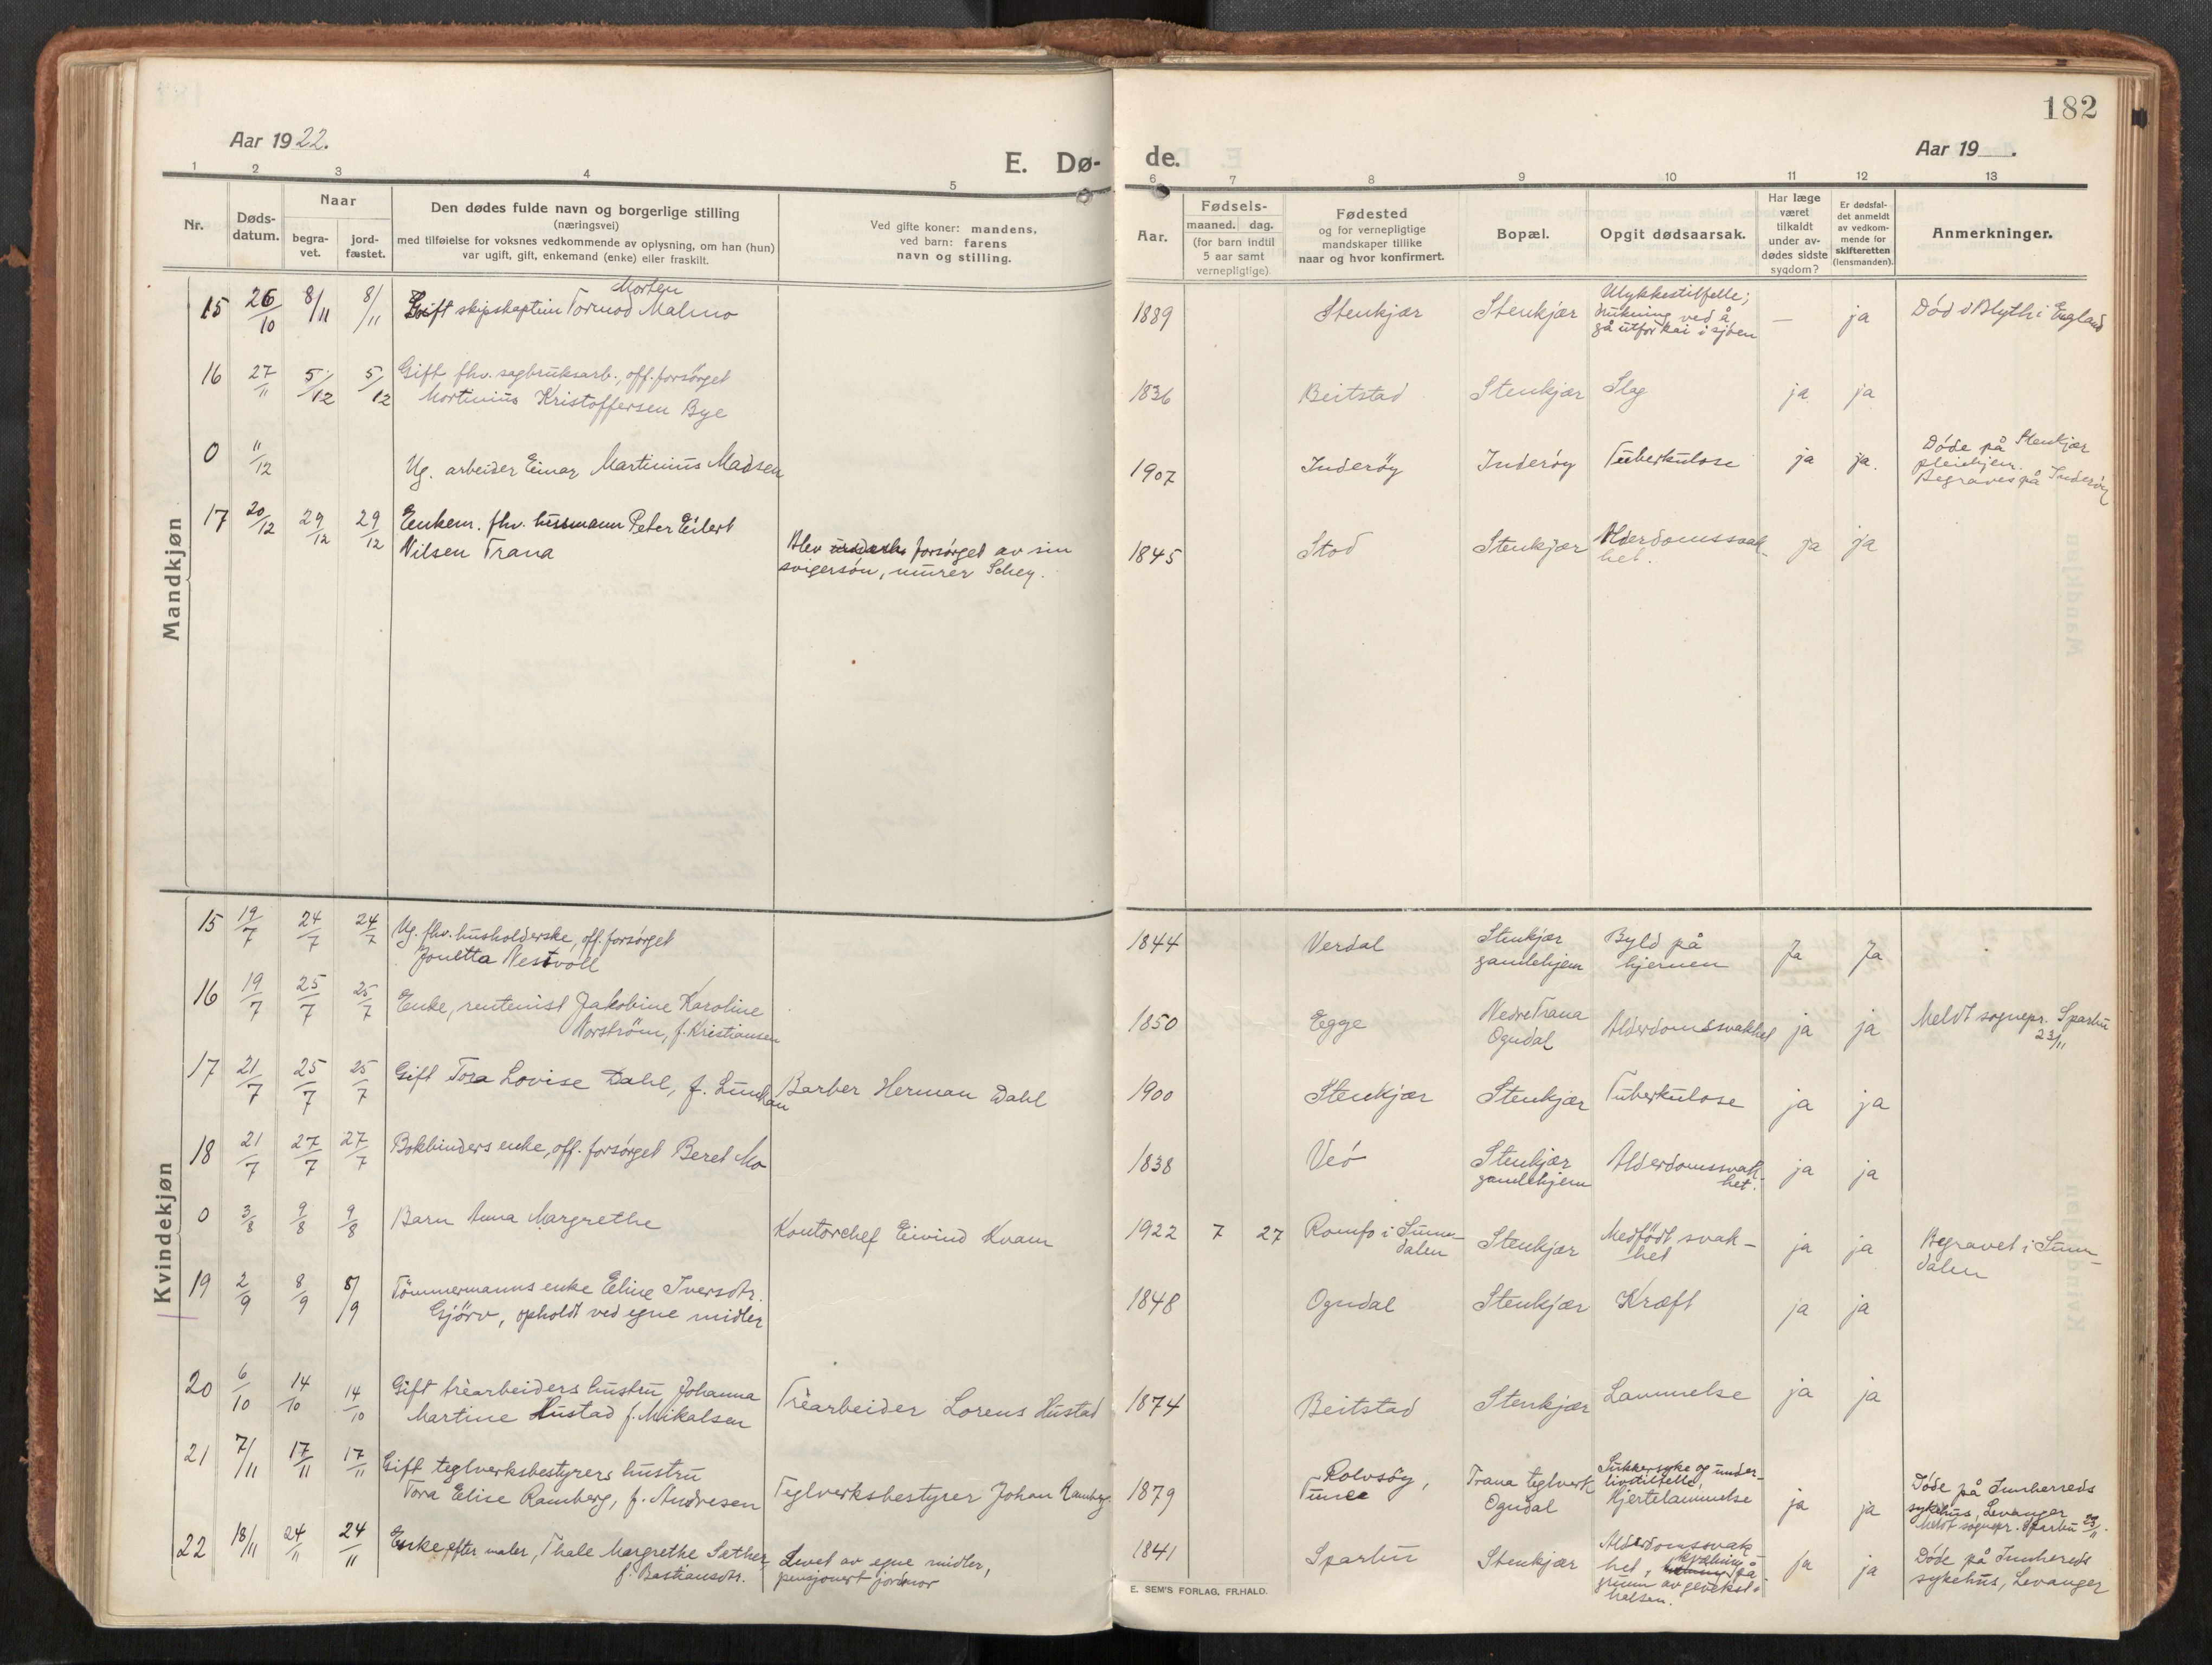 182
Aar 1922.
E. Dø-
de.
Aar 19 .
1 2 3 4 5 6 7 8 9 10 11 12 13
Nr.
Døds-
datum.
Naar
begra-
vet.
jord-
fæstet.
Den dødes fulde navn og borgerlige stilling
(næringsvei)
med tilføielse for voksnes vedkommende av oplysning, om han (hun)
var ugift, gift, enkemand (enke) eller fraskilt.
Ved gifte koner: mandens,
ved barn: farens
navn og stilling.
Aar.
Fødsels-
maaned. dag.
(for barn indtil
5 aar samt
vernepligtige)
Fødested
og for vernepligtige
mandskaper tillike
naar og hvor konfirmert.
Bopæl.
Opgit dødsaarsak.
Har læge
været
tilkaldt
under av-
dødes sidste
sygdom?
Er dødsfal-
det anmeldt
av vedkom-
mende for
skifteretten
(lensmanden).
Anmerkninger.
Mandkjøn
15 26/10 8/11 8/11
Morten
Gift skipskaptein Tormod Malmo
1889 Stenkjær Stenkjær
Ulykkestilfelle;
drukning ved å
gå utfor kai i sjøen
— ja
Død i Blyth i England
16 27/11 5/12 5/12
Gift fhv. sagbruksarb., off. forsørget
Mortinius Kristoffersen Bye
1836 Beitstad Stenkjær Slag ja ja
0 11/12
Ug. arbeider Einar Martinius Madsen
1907 Inderöy Inderöy Tuberkulose ja ja.
Døde på Stenkjær
pleiehjem.
Begraves på Inderöy
17 20/12 29/12 29/12
Enkem. fhv. husmann Peter Eilert
Nilsen Trana
Blev forsørget av sin
svigersøn, murer Schey.
1845 Stod Stenkjær
Alderdomssvak-
het.
ja ja
Kvindekjøn
15 19/7 24/7 24/7
Ug. fhv. husholderske, off. forsørget
Jonetta Nestvoll
1844 Verdal
Stenkjær
gamlehjem
Byld på
hjernen
Ja Ja
16 19/7 25/7 25/7
Enke, rentenist Jakobine Karoline
Norström, f. Kristiansen
1850 Egge
Nedre Trana
Ogndal
Alderdomssvakhet ja ja
Meldt sognepr. Sparbu
23/11
17 21/7 25/7 25/7
Gift Tora Lovise Dahl, f. Lundkan
Barber Herman Dahl
1900 Stenkjær Stenkjær Tuberkulose ja ja
18 21/7 27/7 27/7
Bokbinders enke, off. forsørget Beret Mo
1838 Veö
Stenkjær
gamlehjem
Alderdomssvak-
het.
ja ja
0 3/8 9/8 9/8
Barn Anna Margrethe
Kontorchef Eivind Kvam
1922 7 27
Romfo i Sunn-
dalen
Stenkjær
Medfödt svak-
het
ja ja
Begravet i Sunn-
dalen
19 2/9 8/9 8/9
Tömmermanns enke Eline Iversdtr.
Gjörv, opholdt ved egne midler
1848 Ogndal Stenkjær Kræft ja ja
20 6/10 14/10 14/10
Gift trèarbeiders hustru Johanna
Martine Hustad f. Mikalsen
Trèarbeider Lorens Hustad
1874 Beitstad Stenkjær Lammelse ja ja
21 7/11 17/11 17/11
Gift teglverksbestyrers hustru
Tora Elise Ramberg, f. Andresen
Teglverksbestyrer Johan Ramberg.
1879
Rolvsöy,
Tune
Trana teglverk
Ogndal
Sukkersyke og under-
livstilfelle,
Hjertelammelse
ja ja
Döde på Innherreds
sykehus, Levanger
Meldt sognepr. Sparbu 23/11.
22 18/11 24/11 24/11
Enke efter maler, Thale Margrethe Sæther,
f. Bastiansdtr.
Levet av egne midler,
pensjonert jordmor
1841 Sparbu Stenkjær
Alderdomssvak
het, kvælning på
grunn av gevekst i
halsen.
ja ja
Döde på Innhereds
sykehus, Levanger
E. SEM'S FORLAG, FR.HALD.